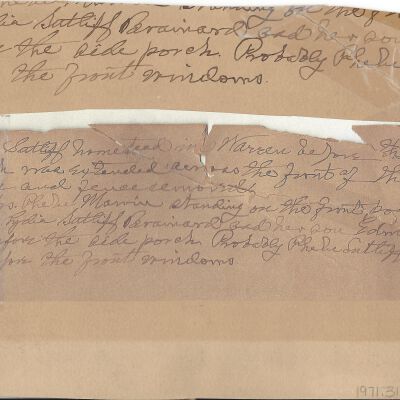 standing on the f
dia Sutliff Brainard and her son
the side porch. Probably Phebe
the front windows.
Sutliff homestead in Warren before th
was extended across the front of th
and fence removed.
s. Phebe Marvin standing on the front por
Lydia Sutliff Brainard and her son Edwi
fore the side porch. Probably Phebe Sutliff
fore the front windows.
1971.31